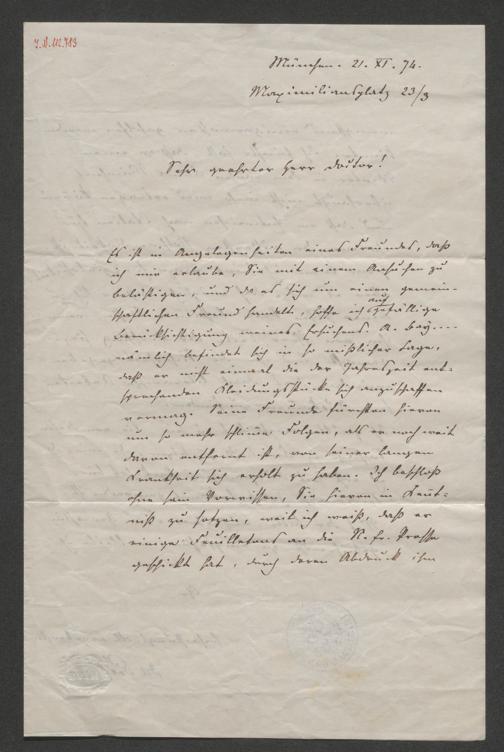 I.N. 112.783
München. 21. XI. 74.
Maximiliansplatz 23/3
Sehr geehrter Herr Doctor!
Es ist in Angelegenheiten eines Freundes, daß
ich mir erlaube, Sie mit einem Ansuchen zu
belästigen, und da es sich um einen gemein-
schaftlichen Freund handelt, hoffe ich auf gefällige
Berücksichtigung meines Ersuchens. A. Bay....
nämlich befindet sich in so mißlicher Lage,
daß er nicht einmal die der Jahreszeit ent-
sprechenden Kleidungsstücke sich anzuschaffen
vermag. Seine Freunde fürchten hievon
um so mehr schlimme Folgen, als er noch weit
davon entfernt ist, von seiner langen
Krankheit sich erholt zu haben. Ich beschloß
ohne sein Vorwissen, Sie hievon in Kennt-
niß zu setzen, weil ich weiß, daß er
einige Feuilletons an die N. fr. Presse
geschickt hat, durch deren Abdruck ihm